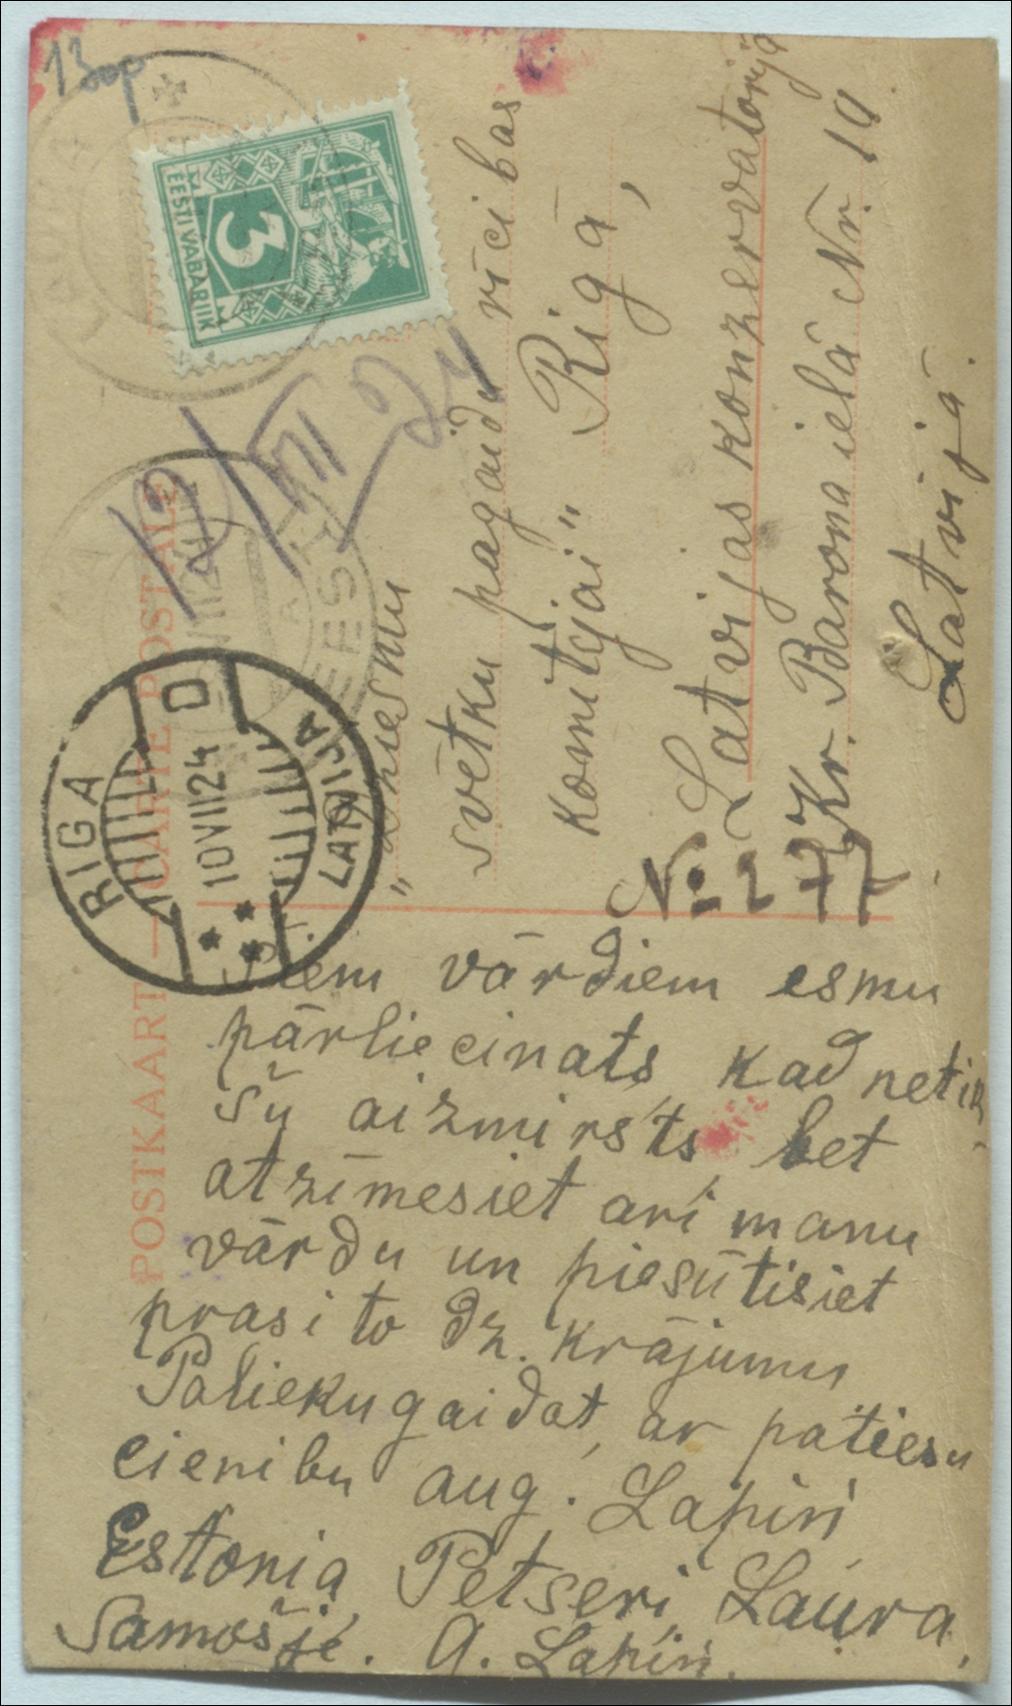 13op
EESTI VABARIIK
3
12/VII 24
EESTI
POSTKAART — CARTE POSTALE
RIGA
10 VII 24
LATVIJA
"Dziesmu
svētku pagaidu rīcibas
komitejai" Rigā,
Latvijas konzervatorijā
Kr. Barona ielā Nr. 19
Latvijā.
No 277
vārdiem esmu
pārliecinats, kad netik
šu aizmirsts, bet
atzīmesiet ari manu
vārdu un piesūtisiet
prasito dz. krājumu
Palieku gaidot, ar patiesu
cienibu aug. Lapiņ
Estonia, Petseri, Laura,
Samošje. A. Lapiņ.